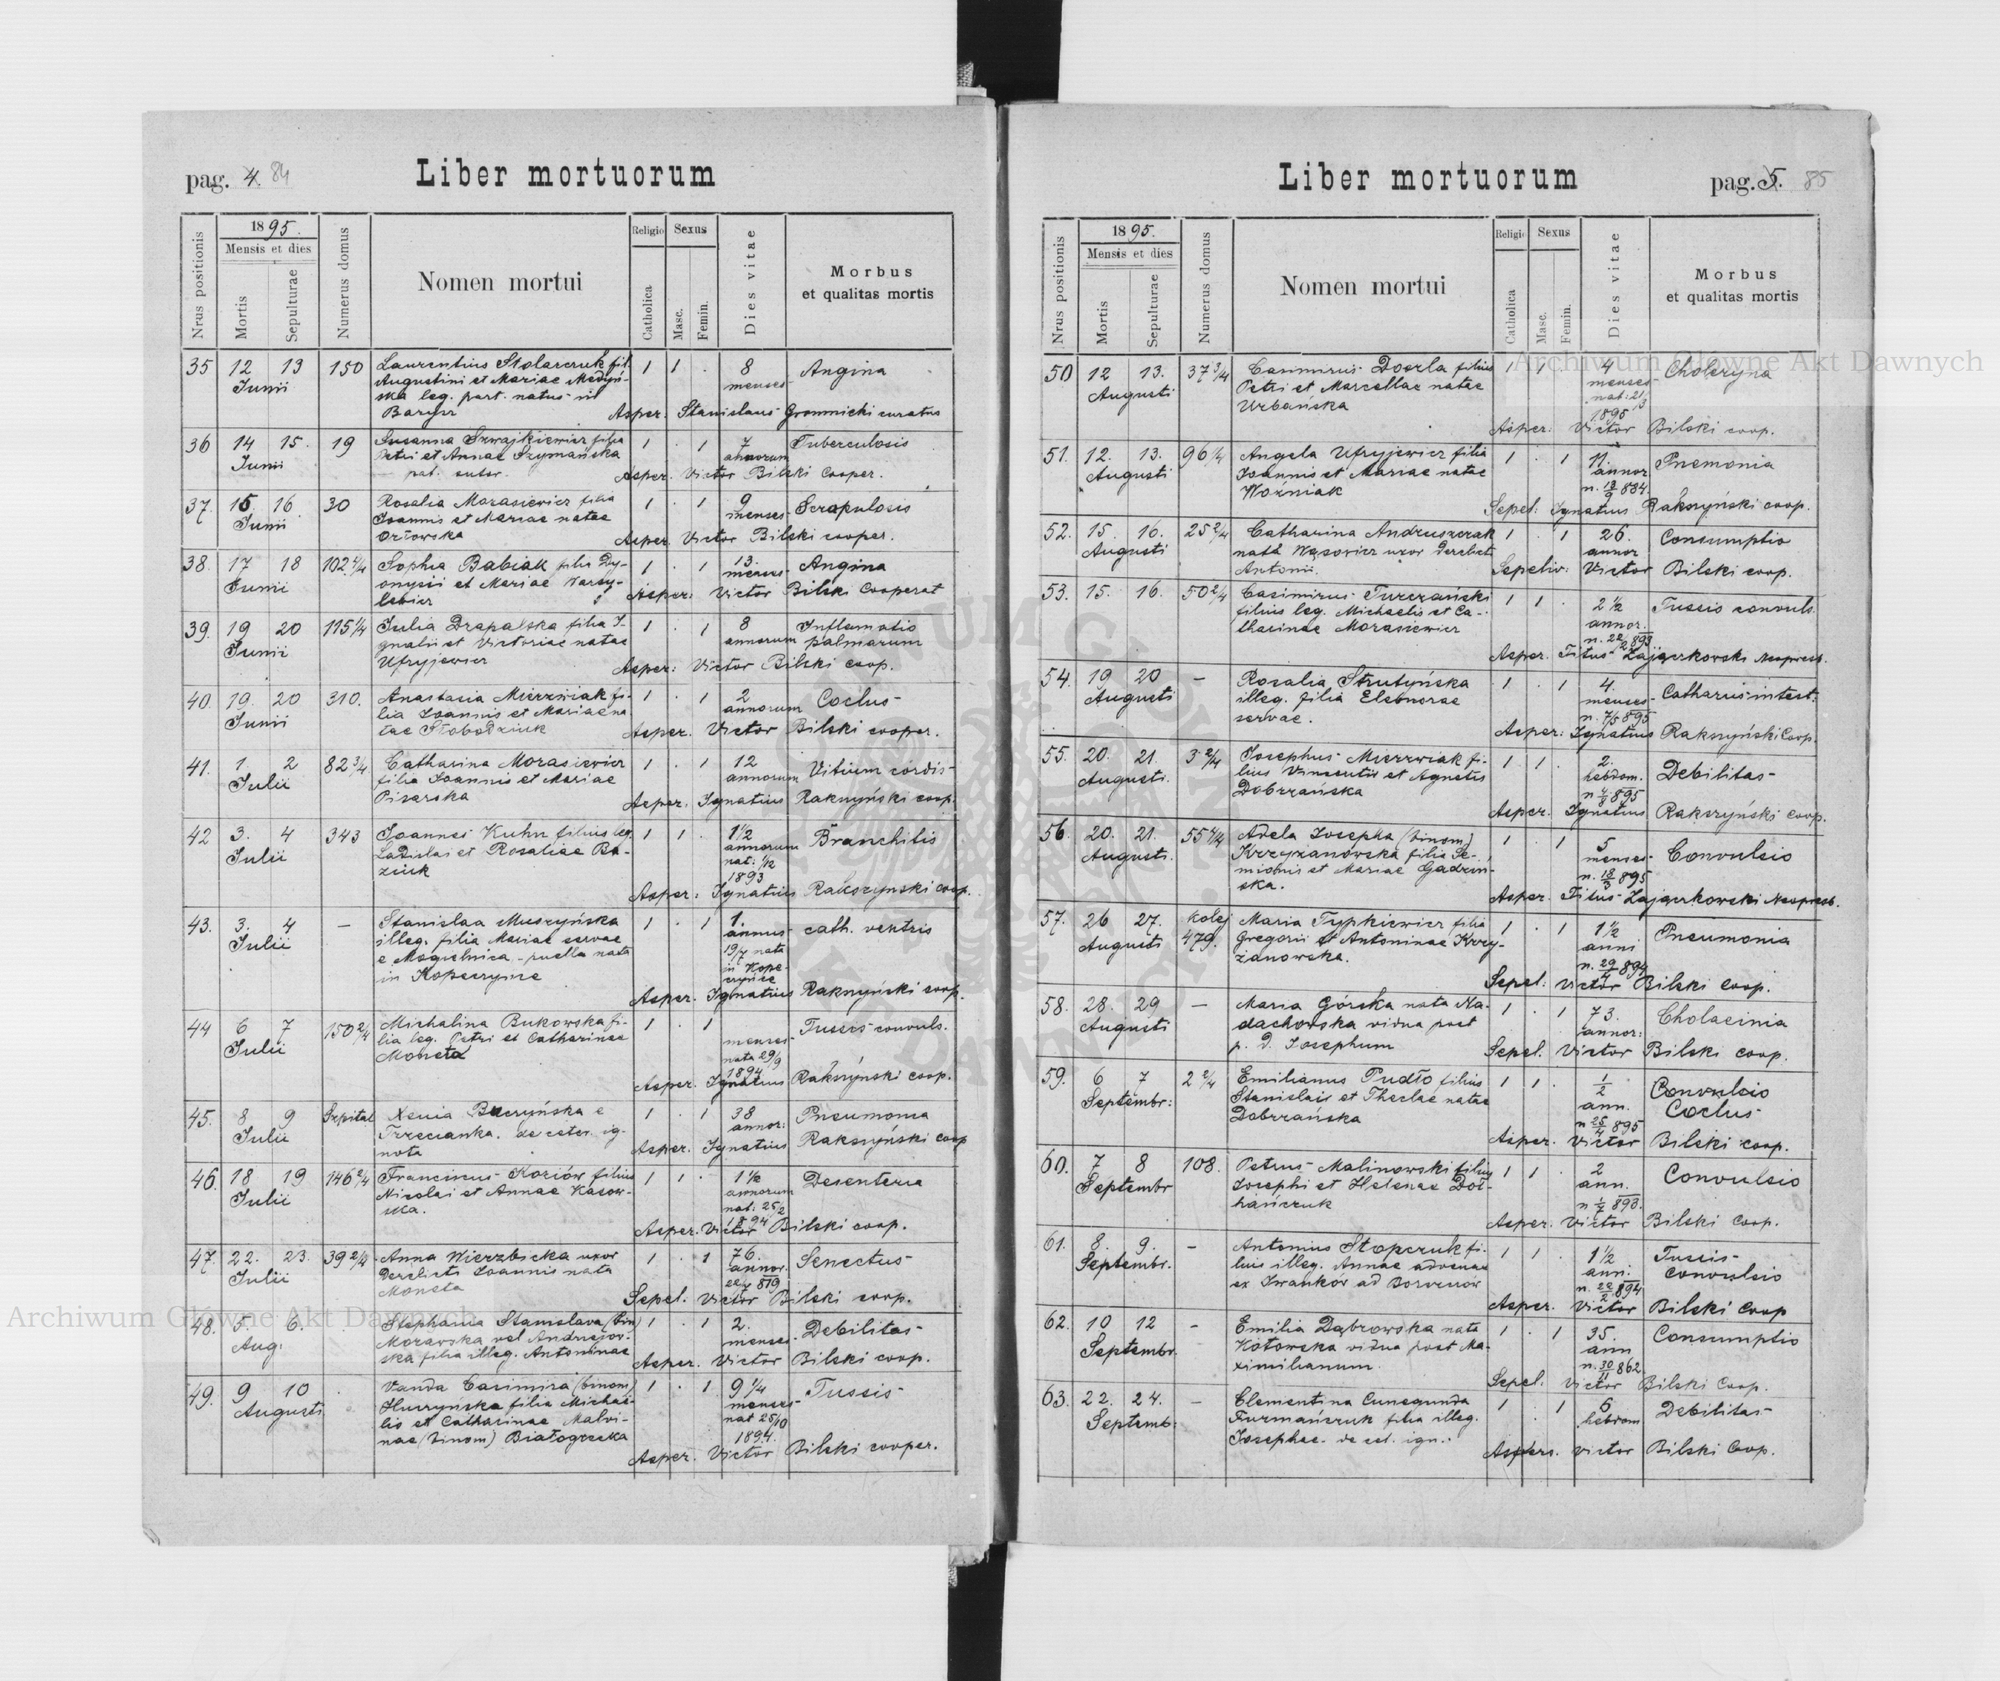 pag. 4. 84
Liber mortuorum
Nrus positionis
1895.
Mensis et dies
Mortis
Sepulturae
Numerus domus
Nomen mortui
Religio
Catholica
Sexus
Masc.
Femin.
Dies vitae
Morbus
et qualitas mortis
35 12 13 150 Laurentius Stolarczuk fil. 1 1 . 8 Angina
Junii Augustini et Mariae Medyń- menses
ska leg. part. natus
Asper. Stanislaus Gromnicki curatus
36 14 15. 19 Susanna Szwajkiewicz filia 1 . 1 7 Tuberculosis
Junii Petri et Annae Szymańska annorum
Asper. Victor Bilski Cooper.
37. 15. 16. 30 Rosalia Morasiewicz filia 1 . 1 9 Scrapulosis
Junii Joannis et Mariae natae menses
Orłowska Asper. Victor Bilski cooper.
38. 17 18 102 4/4 Sophia Babiak filia Dy- 1 . 1 13. Angina
Junii onysii et Mariae menses
Asper. Victor Bilski Cooperat
39. 19 20 115 1/4 Julia Drapalska filia I- 1 . 1 8 Inflamatio
Junii gnatii et Victoriae natae annorum palmarum
Ufryjewicz Asper: Victor Bilski coop.
40. 19. 20 310. Anastasia Mierzwiak fi- 1 . 1 2 Coclus
Junii lia Joannis et Mariae na annorum
tae Słobodziuk Asper. Victor Bilski cooper.
41. 1. 2 82 3/4 Catharina Morasiewicz 1 . 1 12 Vitium cordis
Julii filia Joannis et Mariae annorum
Pisarska Asper. Ignatius Rakszyński coop.
42 3. 4 343 Joannes Kuhn filius leg. 1 1 . 1 1/2 Branchitis
Julii Ladislai et Rosaliae annorum
ziuk nat: 1/12
1893
Asper: Ignatius Rakszynski coop.
43. 3. 4 — Stanislaa Muszyńska 1 . 1 1. cath. ventris
Julii illeg. filia Mariae servae annus
e Mogielnica - puella nata 19/7 nata
in Kopeczynce in Kope-
czynce
Asper. Ignatius Rakszyński coop.
44 6 7 150 2/4 Michalina Bukowska fi- 1 . 1 Tussis convuls.
Julii lia leg. Petri et Catharinae menses
Moneta nata 29/9
1894
Asper. Ignatius Rakszyński coop.
45. 8 9 Szpital Xenia Buczyńska e 1 . 1 38 Pneumonia
Julii Trzecianka. de ceter. ig- annor:
nota Asper. Ignatius Rakszyński coop
46. 18 19 146 2/4 Franciscus Koziów filius 1 1 . 1 1/2 Desenteria
Julii Nicolai et Annae Kasow- annorum
ska. nat: 25/2
1894
Asper. Victor Bilski coop.
47. 22. 23. 39 2/4 Anna Wierzbicka uxor 1 . 1 76. Senectus
Julii derelicti Joannis nata annor.
Moneta 819
Sepel. Victor Bilski coop.
48. 5. 6. Stephania Stanislava (bin) 1 . 1 2. Debilitas
Aug. Morawska vel Andrejow- menses
ska filia illeg. Antoninae
Asper. Victor Bilski coop.
49. 9 10 Vanda Casimira (binom) 1 . 1 9 1/4 Tussis
Augusti Huszyńska filia Michae- menses
lis et Catharinae Malvi- nat 25/10
nae (binom) Białogrzeka 1894.
Asper. Victor Bilski cooper.
Liber mortuorum
pag. 5. 85
Nrus positionis
1895.
Mensis et dies
Mortis
Sepulturae
Numerus domus
Nomen mortui
Religio
Catholica
Sexus
Masc.
Femin.
Dies vitae
Morbus
et qualitas mortis
50 12 13. 37 3/4 Casimirus Dozrla filius 1 1 4 Choleryna
Augusti Petri et Marcellae natae menses
Urbańska nat: 21/3
1895
Asper: Victor Bilski coop.
51. 12. 13. 96 1/4 Angela Ufryjewicz filia 1 . 1 11. Pnemonia
Augusti Joannis et Mariae natae annor
Woźniak n. 884.
Sepel: Ignatius Rakszyński coop.
52. 15. 16. 25 2/4 Catharina Andruszczak 1 . 1 26. Consumptio
Augusti nata Wąsowicz uxor derelicti annor
Antonii. Sepeliv: Victor Bilski coop.
53. 15. 16. 50 2/4 Casimirus Turczański 1 1 . 2 1/2 Tussis convuls.
filius leg. Michaelis et Ca- annor.
tharinae Morasiewicz n. 22/2 893
Asper. Titus Zajączkowski Neopresb.
54. 19 20 — Rosalia Strutyńska 1 . 1 4. Catharus intest.
Augusti illeg. filia Eleonorae menses
servae. n. 7/5 895
Asper: Ignatius Rakszyński Coop.
55. 20. 21. 3 2/4 Josephus Mierzwiak fi- 1 1 . 2. Debilitas
Augusti. lius Vincentii et Agnetis hebdom.
Dobrzańska n 4/8 895
Asper. Ignatius Rakszyński coop.
56. 20. 21. 55 4/4 Adela Josepha (binom) 1 . 1 5 Convulsio
Augusti. Krzyżanowska filia Se- menses
mionis et Mariae Gadzin- n. 18/3 895
ska. Asper. Titus Zajączkowski Neopresb.
57. 26 27. kolej Maria Typkiewicz filia 1 . 1 1 1/2 Pneumonia
Augusti 479. Gregorii et Antoninae Krzy- anni
żanowska. n. 29/4 894
Sepel: Victor Bilski Coop.
58. 28. 29 — Maria Górska nata Na- 1 . 1 73. Cholacinia
Augusti dachowska vidua post annor:
p. d. Josephum Sepel. Victor Bilski coop.
59. 6 7 2 2/4 Emilianus Pudło filius 1 1 . 1/2 Convulsio
Septembr: Stanislai et Theclae natae ann. Coclus
Dobrzańska n 25/4 895
Asper. Victor Bilski coop.
60. 7 8 108. Petrus Malinowski filius 1 1 . 2 Convulsio
Septembr Josephi et Helenae Doł- ann.
hańczuk n 1/7 893.
Asper. Victor Bilski Coop.
61. 8. 9. - Antonius Stopczuk fi- 1 1 . 1 1/2 Tussis
Septembr. lius illeg. Annae advenae anni. convulsio
ex Iwanków ad Borszczów n. 22/2 894
Asper. Victor Bilski Coop
62. 10 12 - Emilia Dąbrowska nata 1 . 1 35. Consumptio
Septembr. Kotowska vidua post Ma- ann
ximilianum. n. 30/11 862
Sepel. Victor Bilski Coop.
63. 22. 24. - Clementina Cunegunda 1 . 1 5 Debilitas
Septemb: Furmańczuk filia illeg. hebdom
Josephae. de cet. ign.
Aspers. Victor Bilski Coop.
Archiwum Główne Akt Dawnych
Archiwum Główne Akt Dawnych